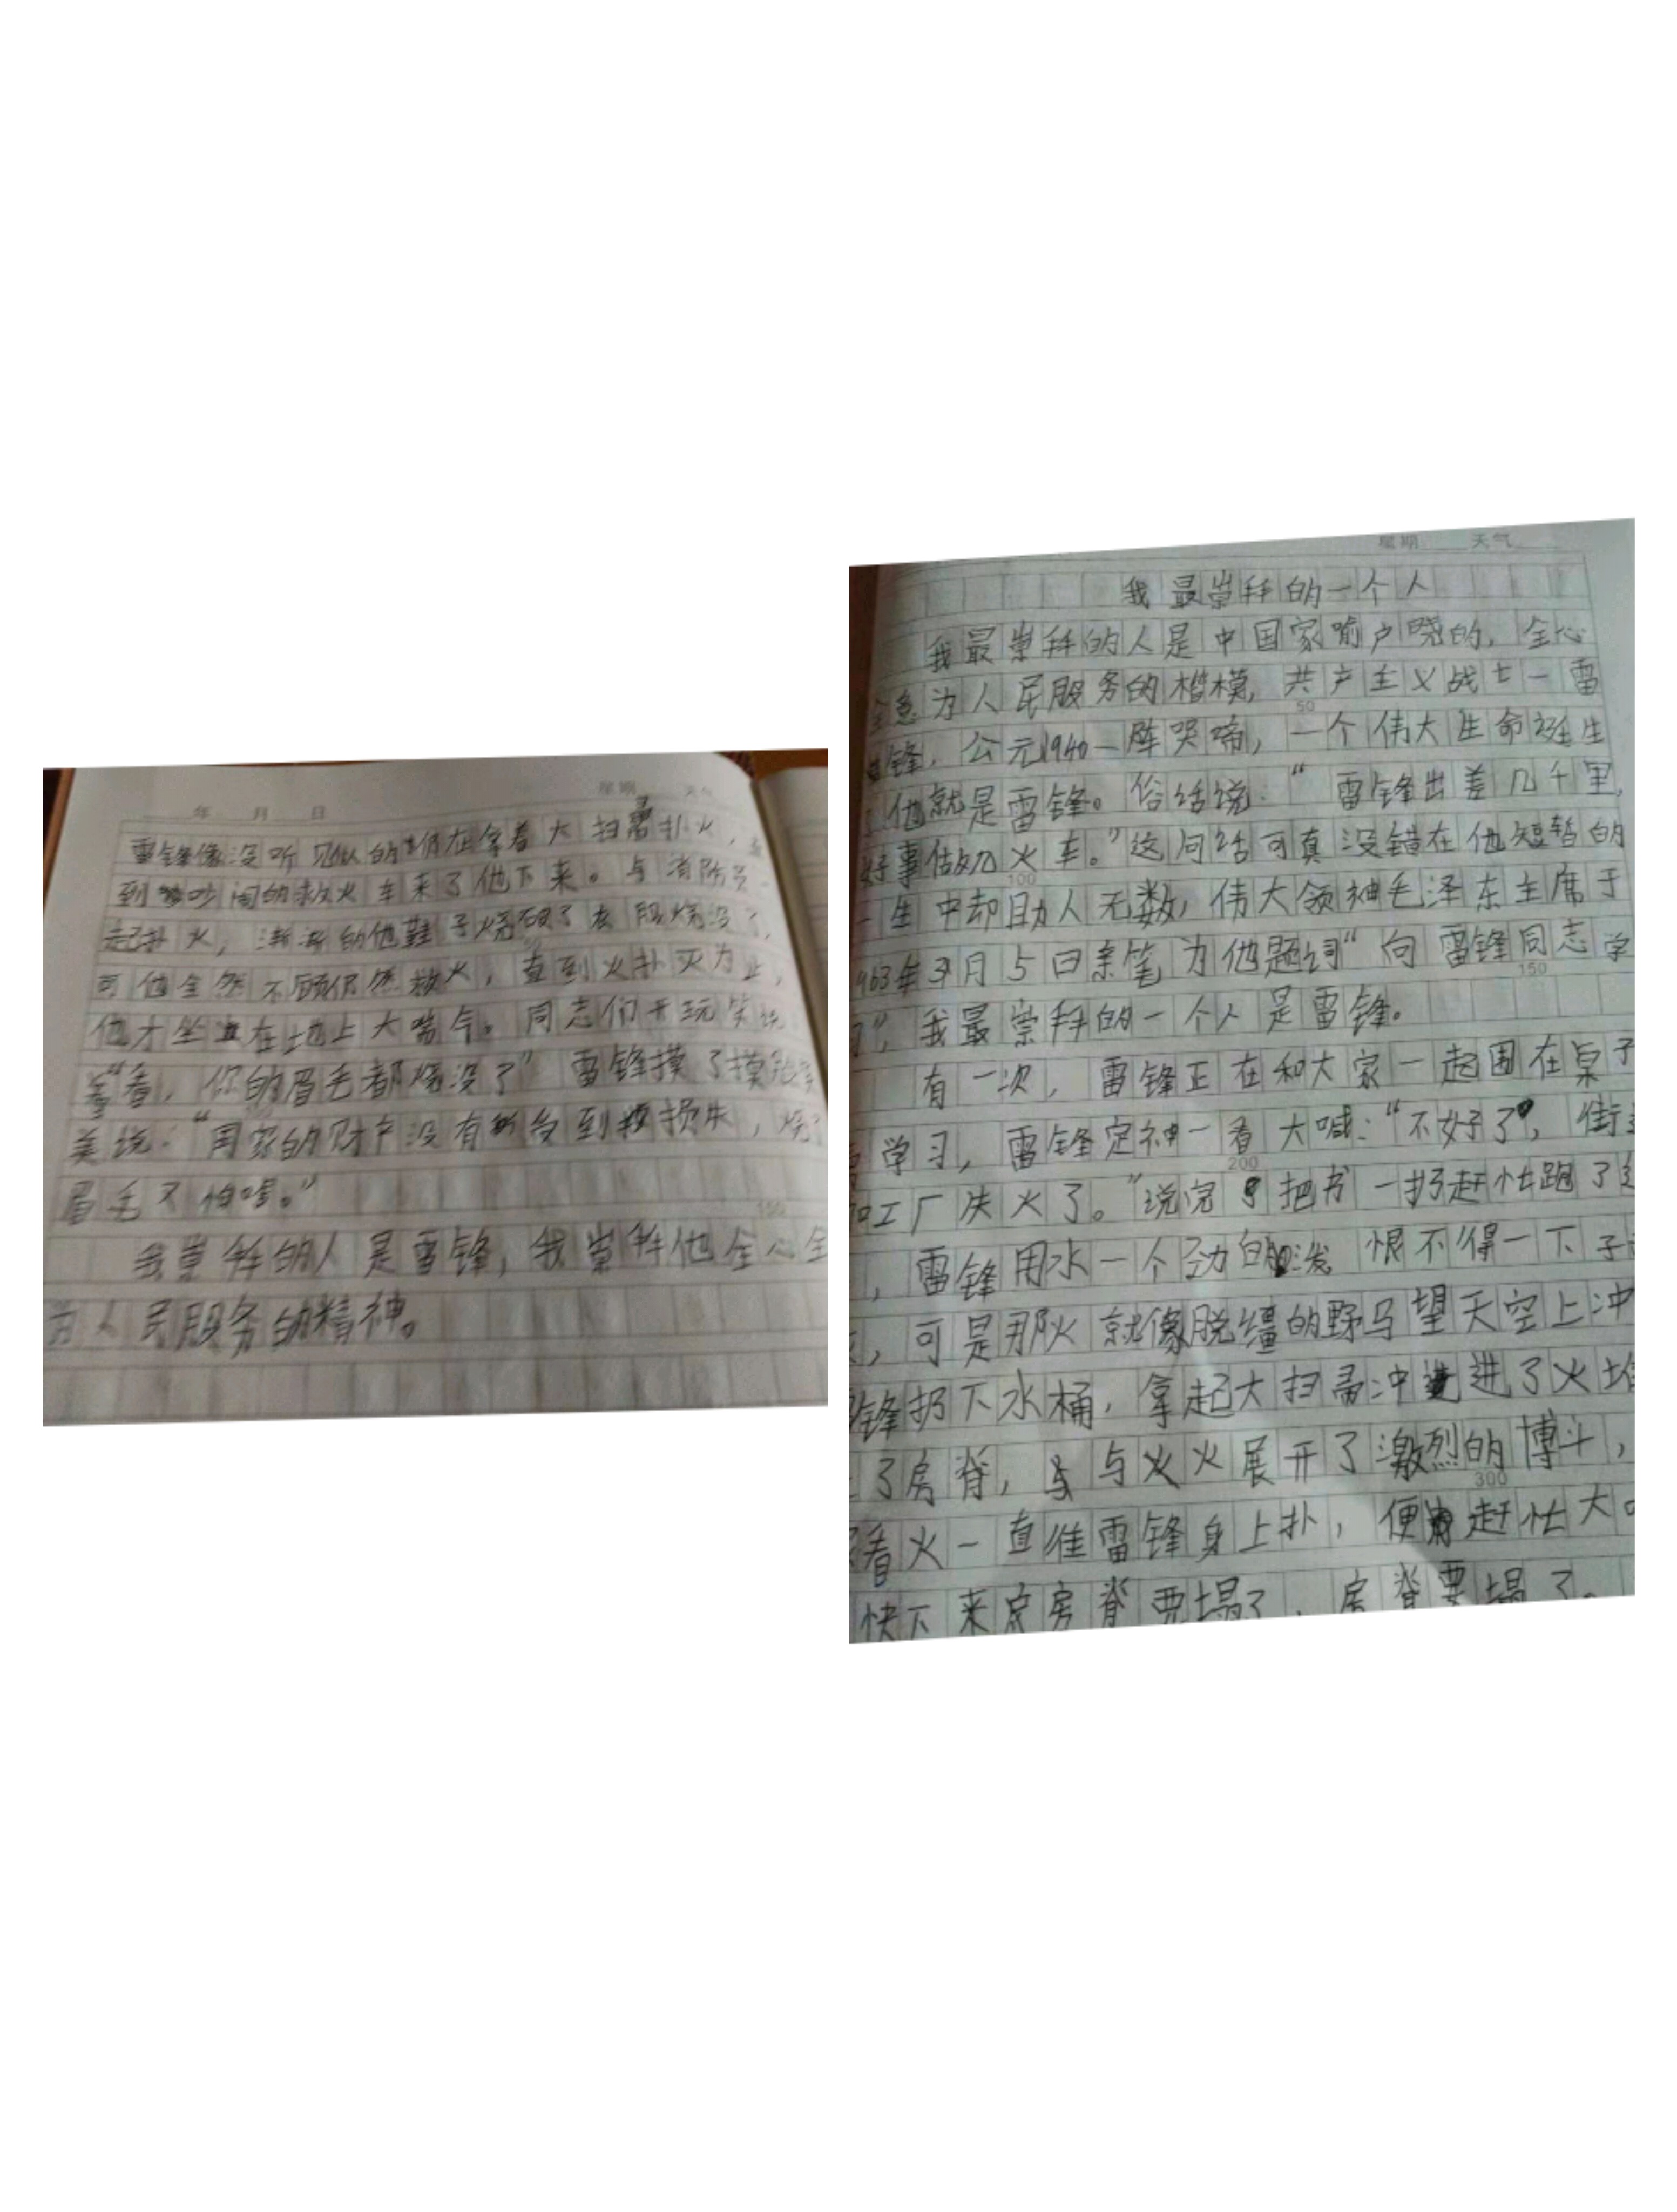 星期 天气
我最崇拜的一个人
我最崇拜的人是中国家喻户晓的,全心
全意为人民服务的楷模,共产主义战士一雷
锋,公元1940一阵哭啼,一个伟大生命诞生
他就是雷锋。俗话说:“雷锋出差几千里,
好事做如火车。”这问话可真没错在他短暂的
一生中却助人无数,伟大领袖毛泽东主席于
1963年3月5日亲笔为他题词“向雷锋同志学
习”,我最崇拜的一个人是雷锋。
有一次,雷锋正在和大家一起围在桌子
学习,雷锋定神一看大喊:“不好了,街
加工厂失火了。”说完把书一扔赶忙跑了
,雷锋用水一个劲的泼恨不得一下子
,可是那火就像脱缰的野马望天空上冲
锋扔下水桶,拿起大扫帚冲进了火
了房脊,与火展开了激烈的博斗,
看火一直往雷锋身上扑,便赶忙大
快下来房脊要塌了,房脊要塌了。
年 月 日 星期 天气
雷锋像没听见似的仍在拿着大扫帚扑火,
到吵闹的救火车来了他下来。与消防员
起扑火,渐渐的他鞋子烧破了衣服烧没了,
可他全然不顾仍然救火,直到火扑灭为止,
他才坐在地上大喘气。同志们开玩笑说
“看,你的眉毛都烧没了”雷锋摸了摸
笑说:“国家的财产没有受到损失,烧
眉毛不怕啥。”
我崇拜的人是雷锋,我崇拜他全心全
为人民服务的精神。